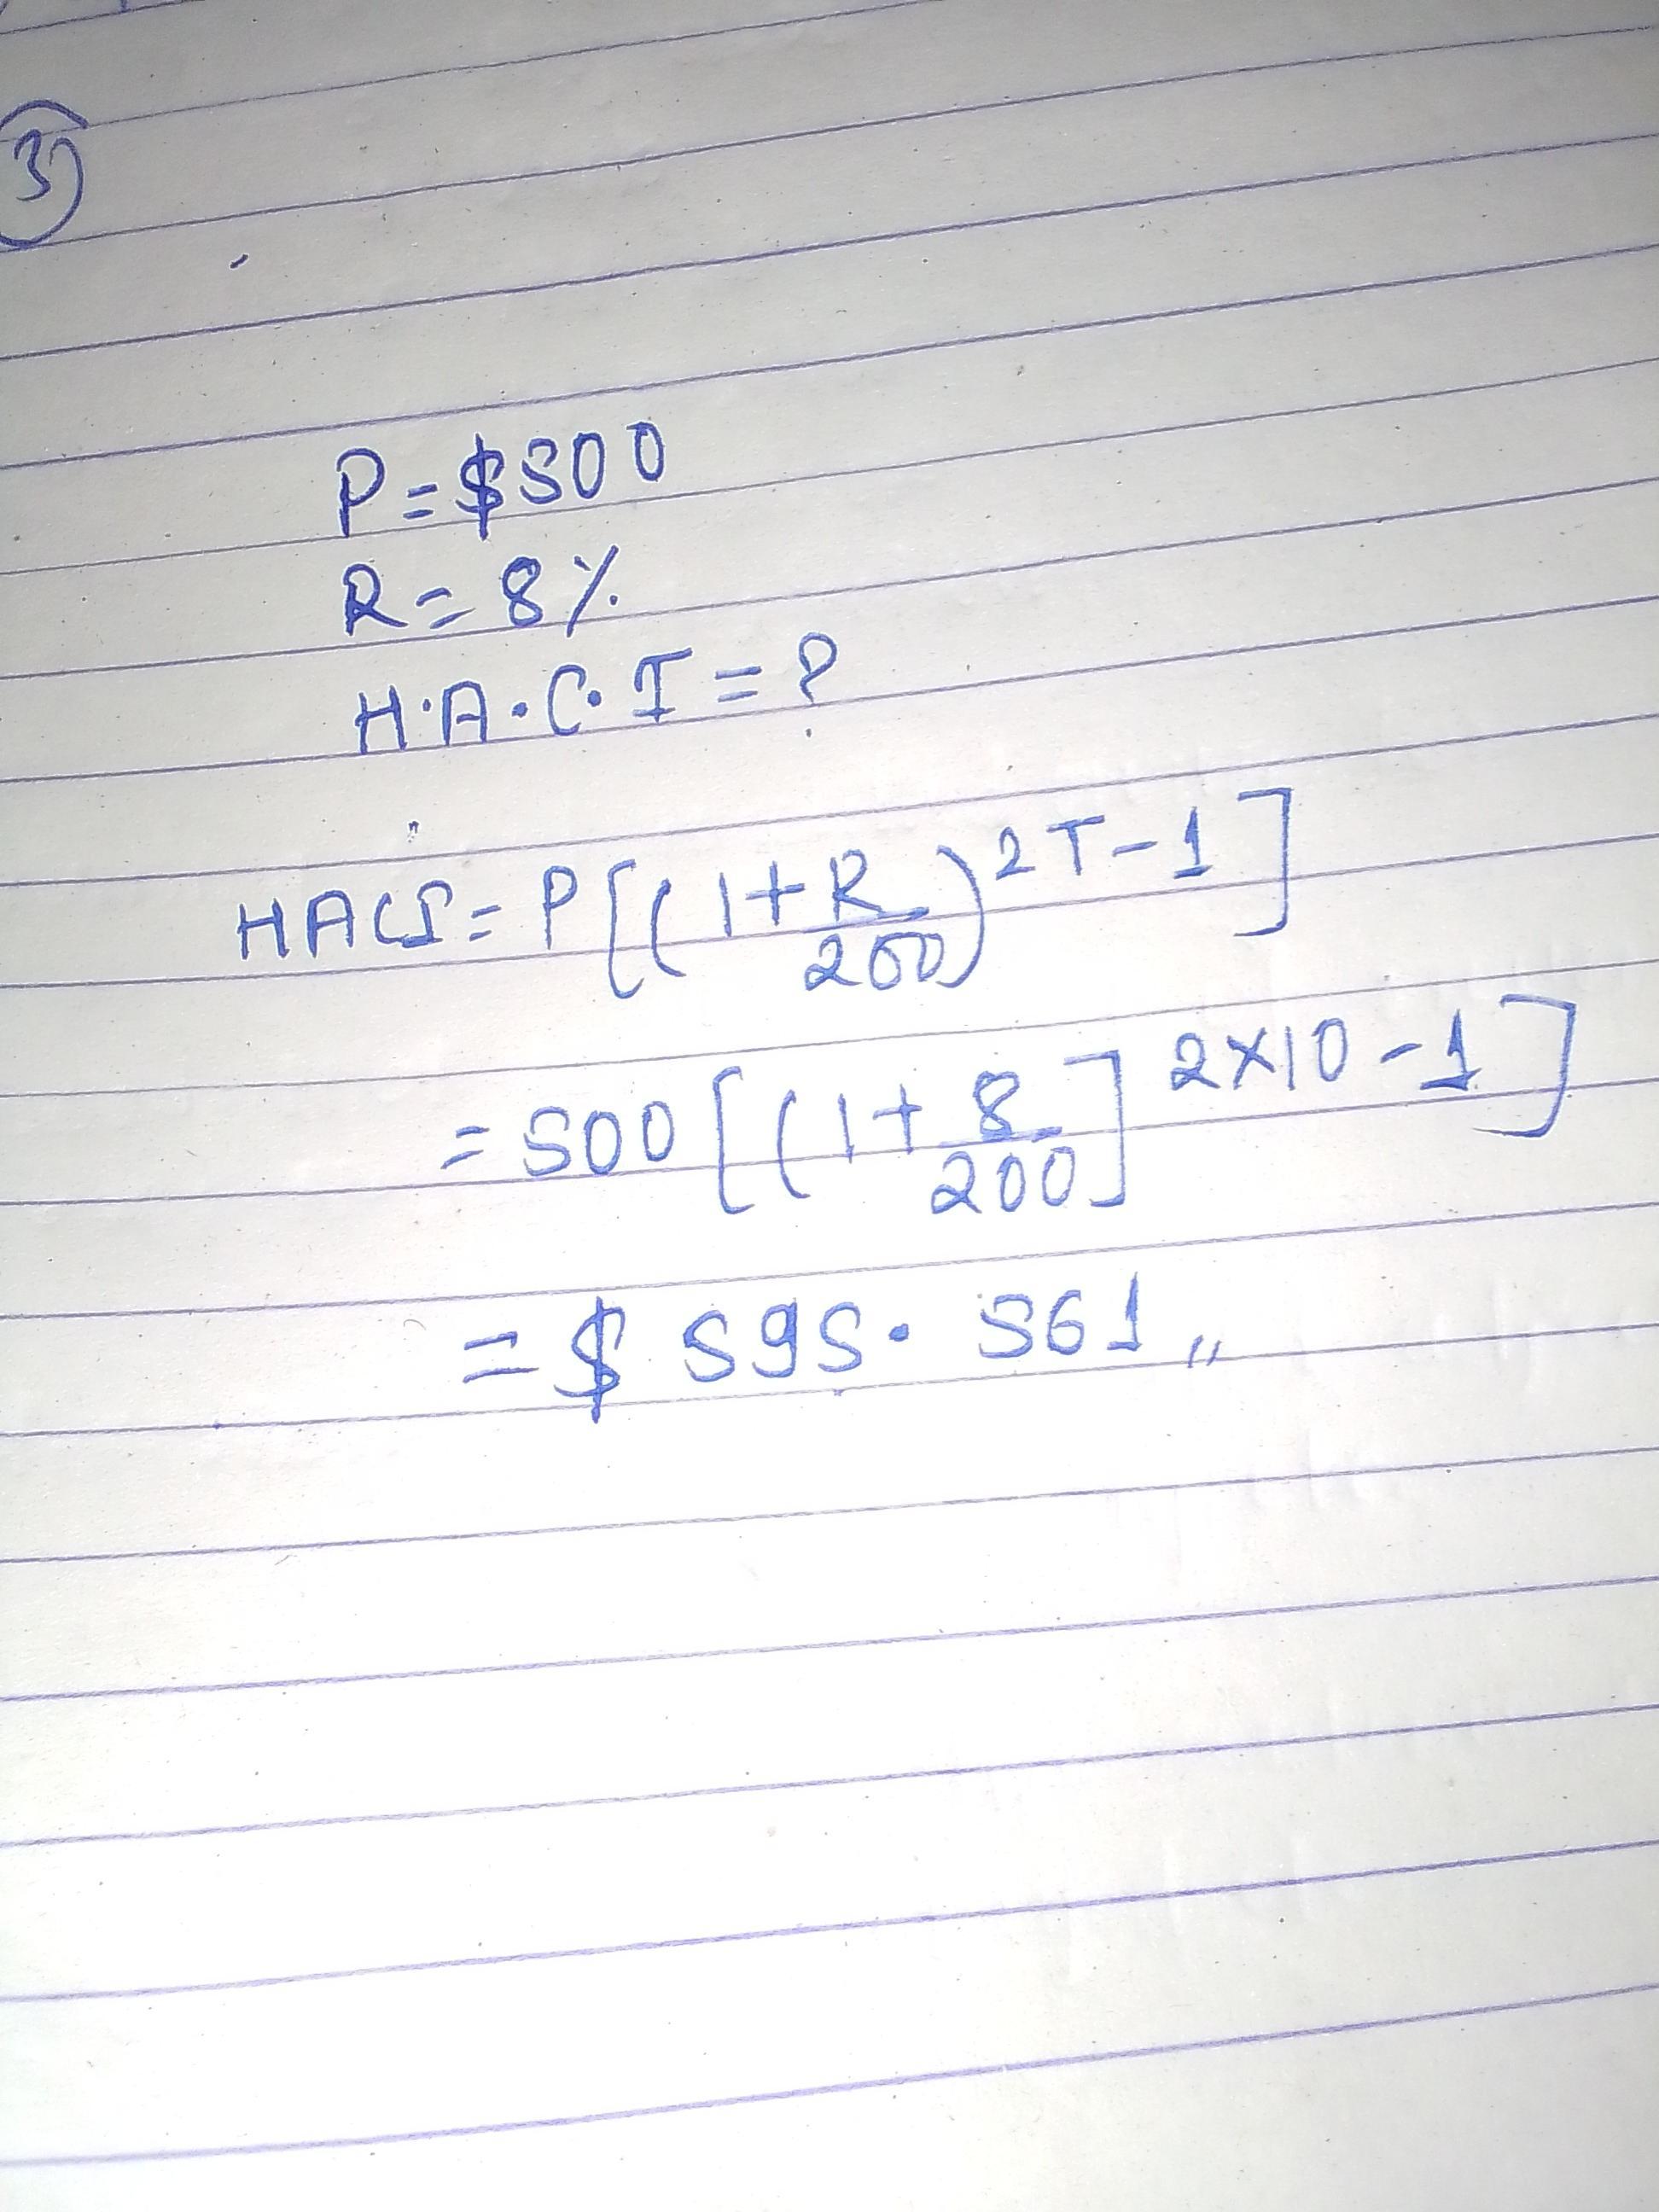 3
P = $500
R = 8%
H.A.C.I = ?
HACI = P[(1+R/200)^2T-1]
= 500[(1+8/200]^2×10-1]
= $595.561,,